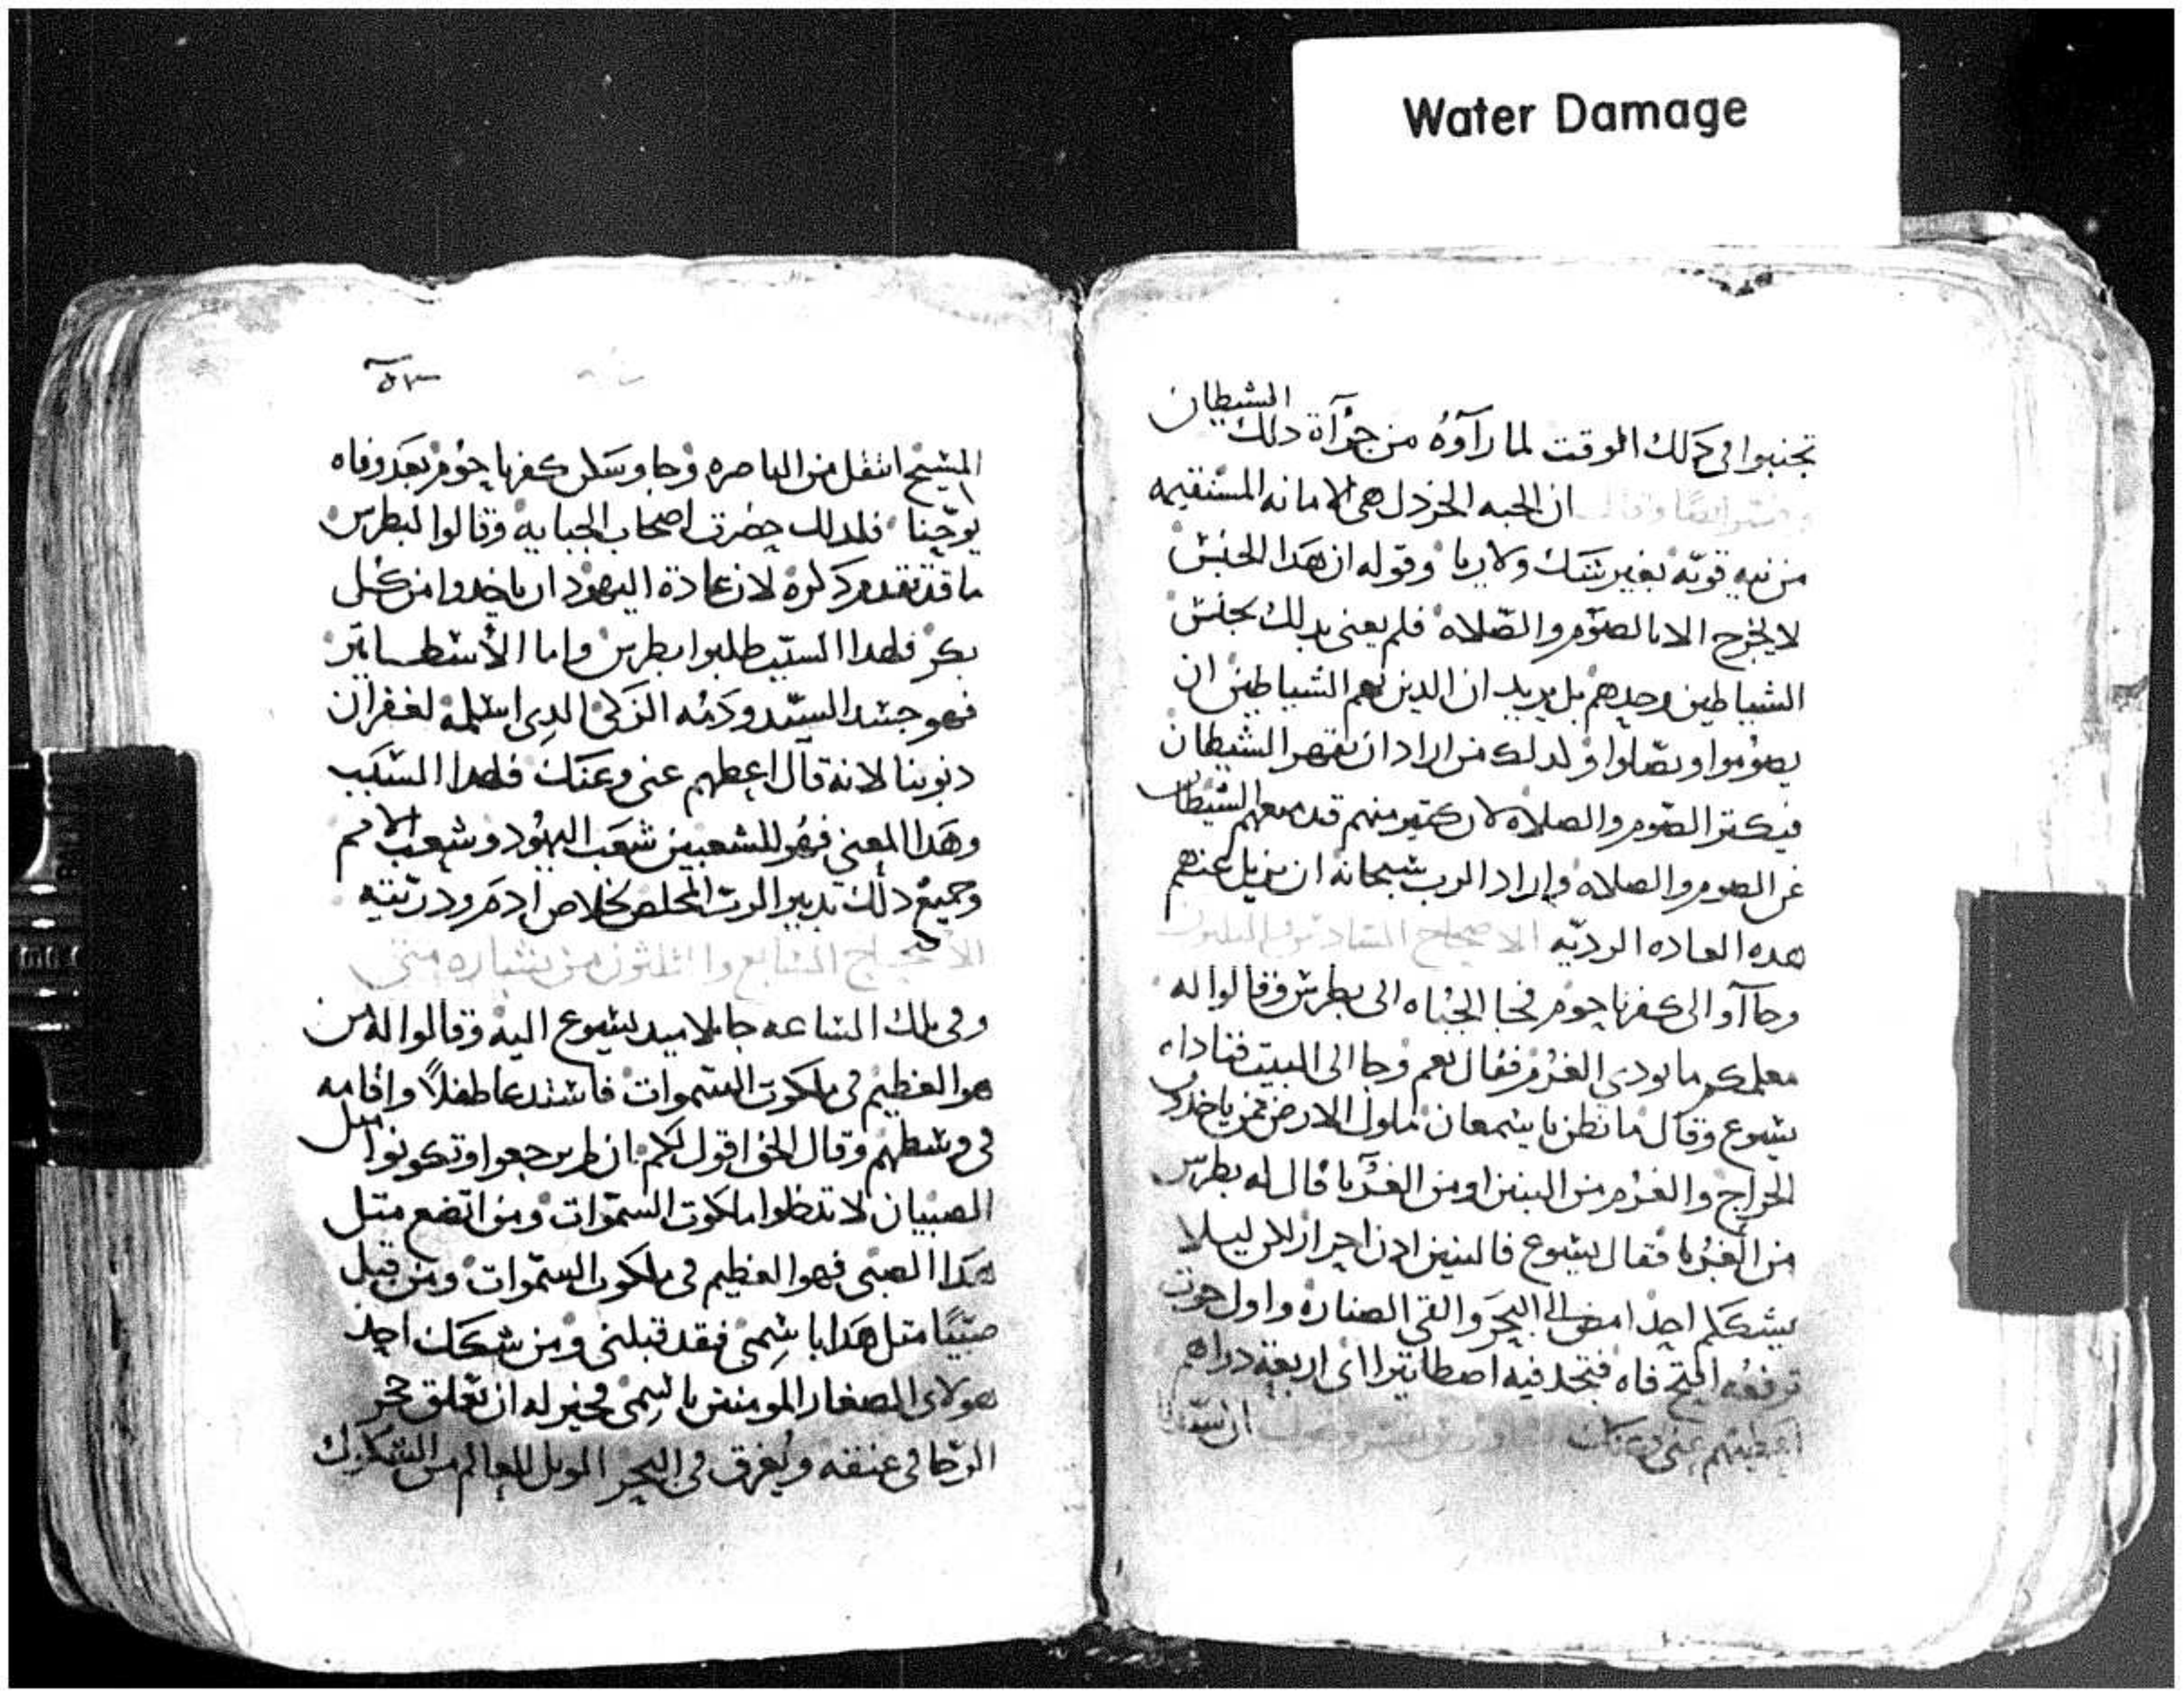 Water Damage
تجنبوا فى كدلك الوقت لما رآوه من جرآة دلك الشيطان
وفسر ايضا وقال ان الحبه الخردل هى الامانه المستقيمه
من نيه قويّه بغير شك ولا ريا وقوله ان هدا الجنس
لا يخرج الا بالصوم والصّلاه فلم يعنى بدلك بجنس
الشياطين وحدهم بل يريد ان الدين بهم الشياطين ان
يصوموا ويصّلوا ولدلك من اراد ان يقهر الشيطان
فيكتر الصّوم والصلاه لان كتير منهم قد منعهم الشيطان
عن الصوم والصلاه واراد الرب سبحانه ان يزيل عنهم
هده العاده الرديّه الاصحاح السادس والتلتون
وجاآوا الى كفرناحوم فجا الجباه الى بطرس وقالوا له
معلمكم ما يودى الغرم فقال نعم وجا الى البيت فناداه
يسوع وقال ما تظن يا سمعان ملوك الارض ممن ياخدون
الخراج والغرم من البنين او من الغربا قال له بطرس
من الغربا فقال يسوع فالبنين ادن احرار لاكن ليلا
يشككم احد امض الى البحر والقى الصناره واول حوت
ترفعه افتح فاه فتجد فيه اصطاتيرا اى اربعة دراهم
اعطيهم عنى وعنك ان سيدنا
٥٣
المسيح انتقل من الناصره وجا وسكن كفرناحوم بعد وفاه
يوحنا فلدلك حضرت اصحاب الجبايه وقالوا لبطرس
ما قد تقدم دكره لان عادة اليهود ان ياخدوا من كل
بكر فلهدا السبب طلبوا بطرس واما الأسطاتير
فهو جسد السيّد ودمه الزكى الدى اسلمه لغفران
دنوبنا لانه قال اعطهم عنى وعنك فلهدا السبب
وهدا المعنى فهو للشعبين شعب اليهود وشعب الامم
وجميع دلك تدبير الرب المخلص لخلاص ادم ودريته
الاصحاح السابع والتلثون من بشارة متى
وفى تلك الساعه جا تلاميد يسوع اليه وقالوا له من
هو العظيم فى ملكوت السموات فاستدعا طفلاً واقامه
فى وسطهم وقال الحق اقول لكم ان لم ترجعوا وتكونوا متل
الصبيان لا تدخلوا ملكوت السموات ومن اتضع متل
هدا الصبى فهو العظيم فى ملكوت السموات ومن قبل
صبيًا متل هدا باسمى فقد قبلنى ومن شكك احد
هولاى الصغار المومنين باسمى فخير له ان تعلق حجر
الرحا فى عنقه ويغرق فى البحر الويل للعالم من الشكوك